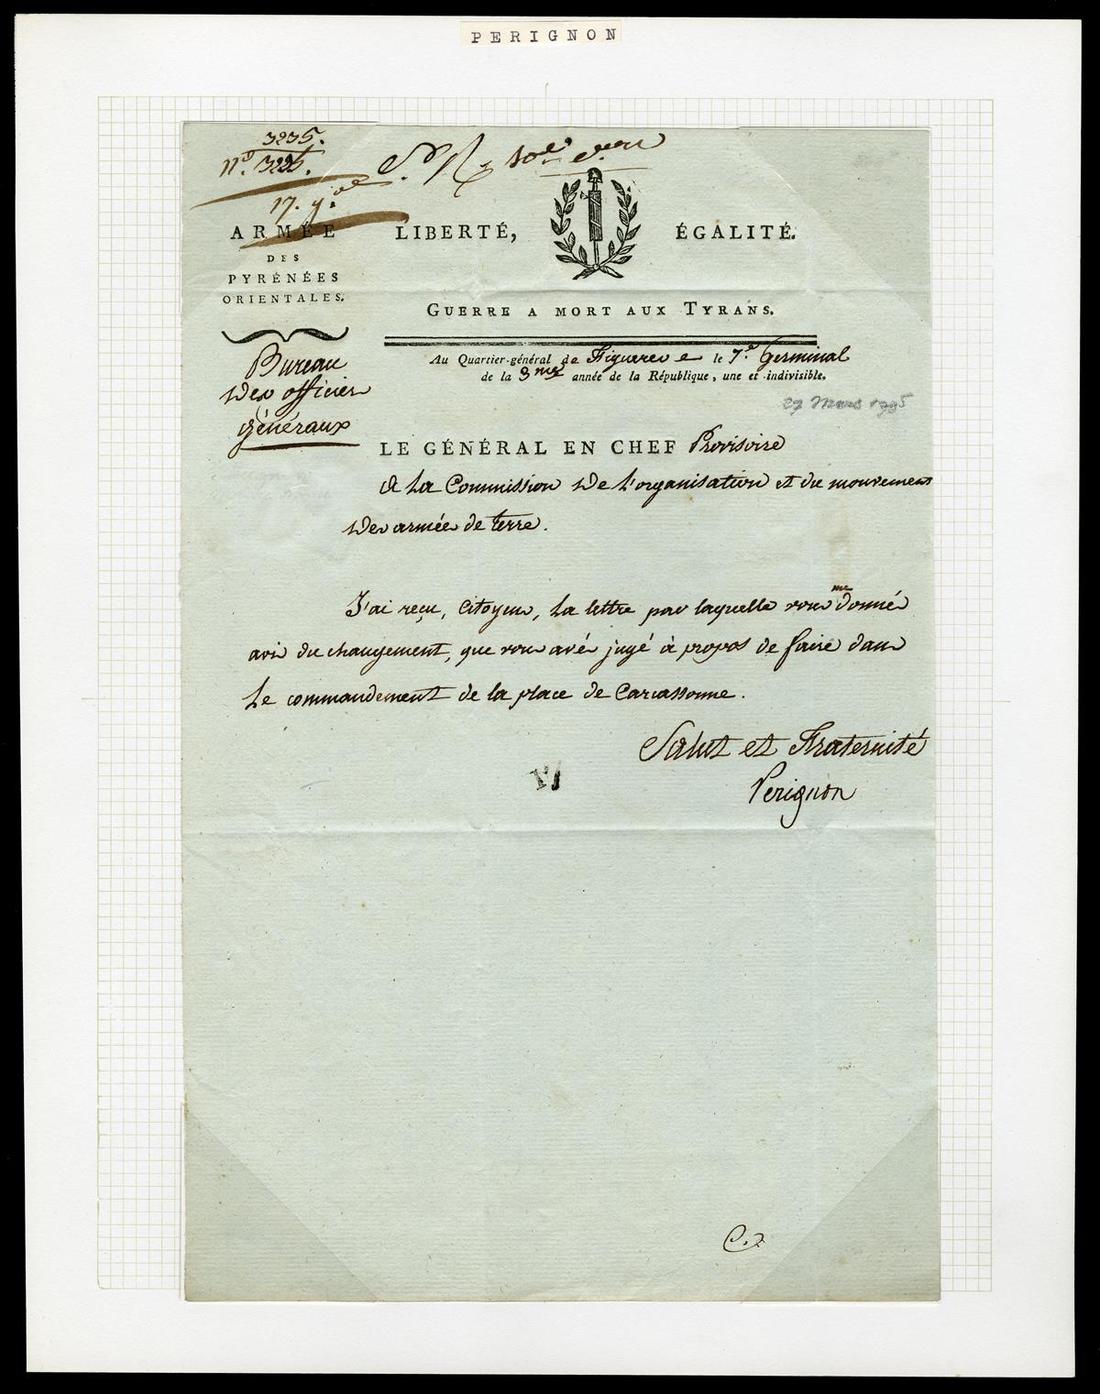 PERIGNON
3235.
n.º 3225.
17. g.al
ARMÉE
DES
PYRÉNÉES
ORIENTALES.
LIBERTÉ, ÉGALITÉ.
GUERRE A MORT AUX TYRANS.
Au Quartier-général de Figueres le 7.e Germinal
de la 3me année de la République, une et indivisible.
27 Mars 1795
Bureau
des officiers
généraux
LE GÉNÉRAL EN CHEF Provisoire
A La Commission de L'organisation et du mouvement
des armées de terre.
J'ai reçu, Citoyens, la lettre par laquelle vous me donnés
avis du changement, que vous avés jugé à propos de faire dans
Le commandement de la place de Carcassonne.
Salut et Fraternité
Perignon